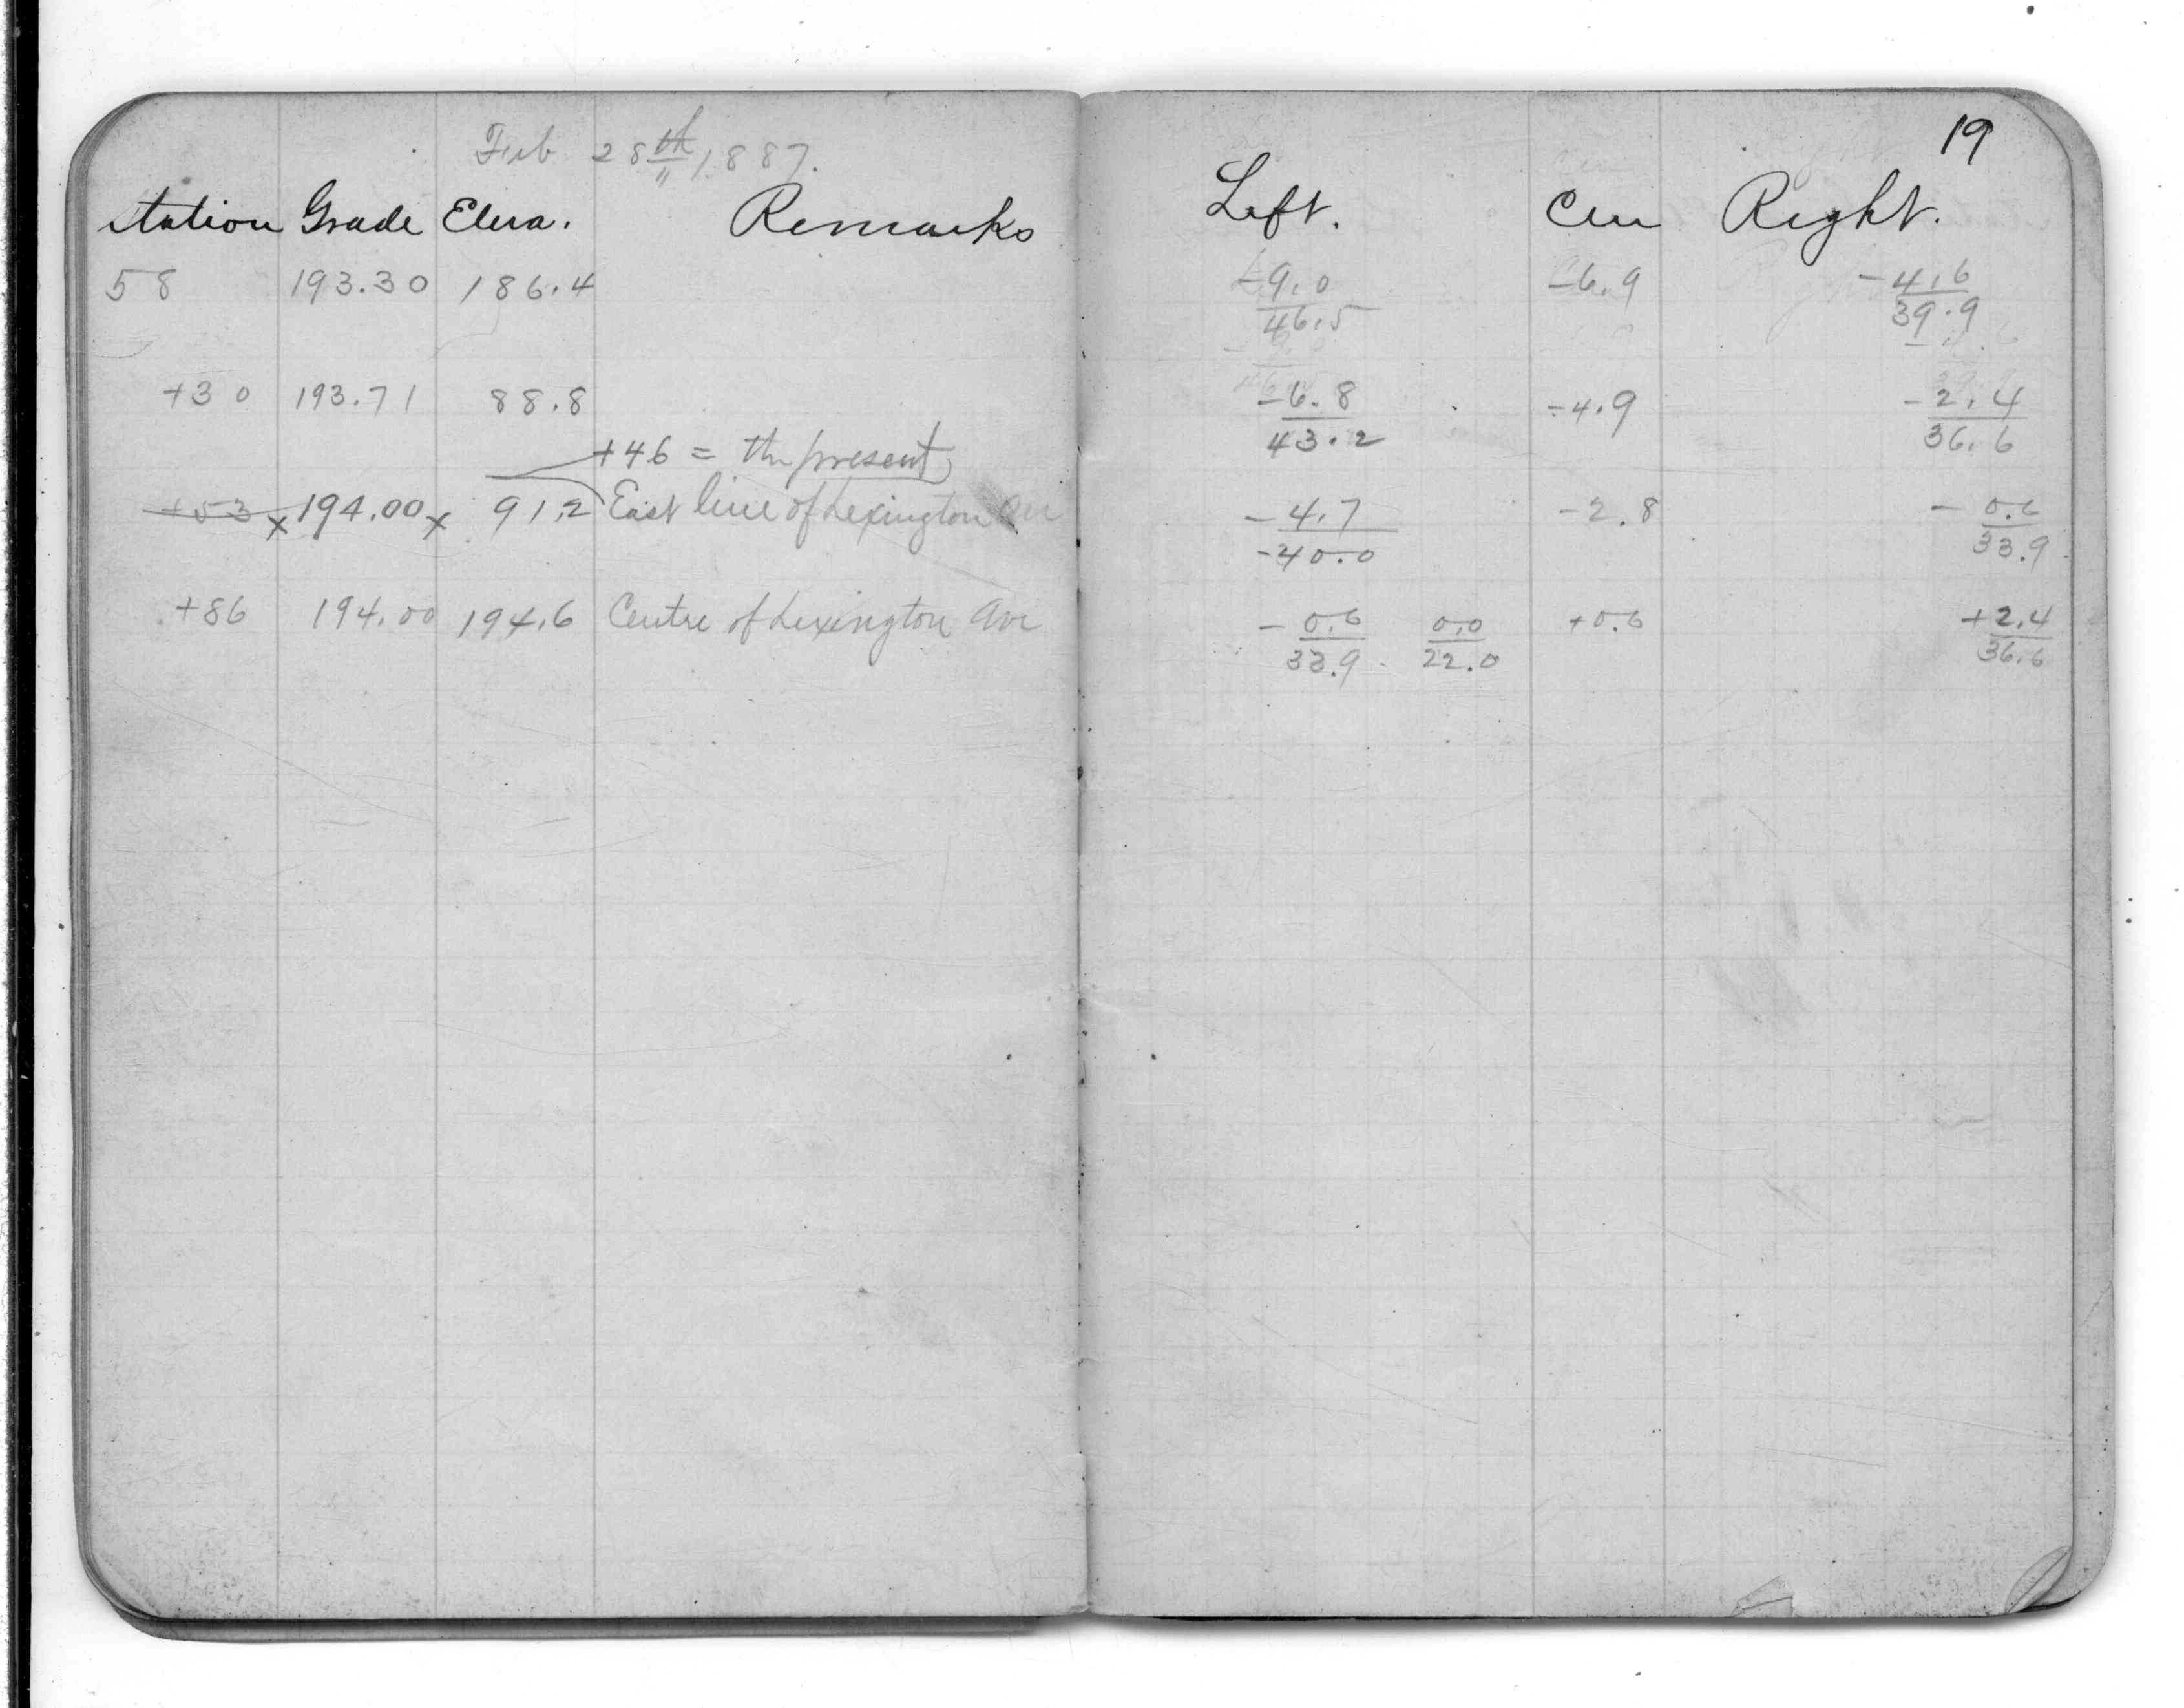 Feb 28th 1887.
Station Grade Eleva. Remarks
58 193.30 186.4
+30 193.71 88.8
+46 = the present
+53 x 194.00 x 91.2 East line of Lexington Av
+86 194.00 194.6 Centre of Lexington Ave
19
Left. Cen Right.
-9.0 -6.9 -4.6
46.5 39.9
-6.8 -4.9 -2.4
43.2 36.6
-4.7 -2.8 -0.6
-40.0 33.9
-0.6 0.0 +0.6 +2.4
33.9 22.0 36.6